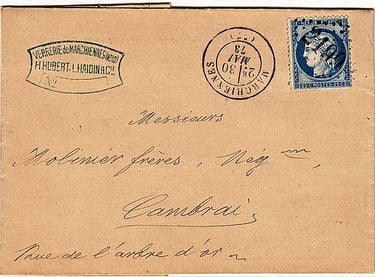 VERRERIE de MARCHIENNES (NORD)
H. HUBERT, L. HAIDIN & Cie
MARCHIENNES
2e
30
MAI
73
(57)
25 c. POSTES 25 c.
Messieurs
Molinier frères, Nég
Cambrai
Rue de l'arbre d'or